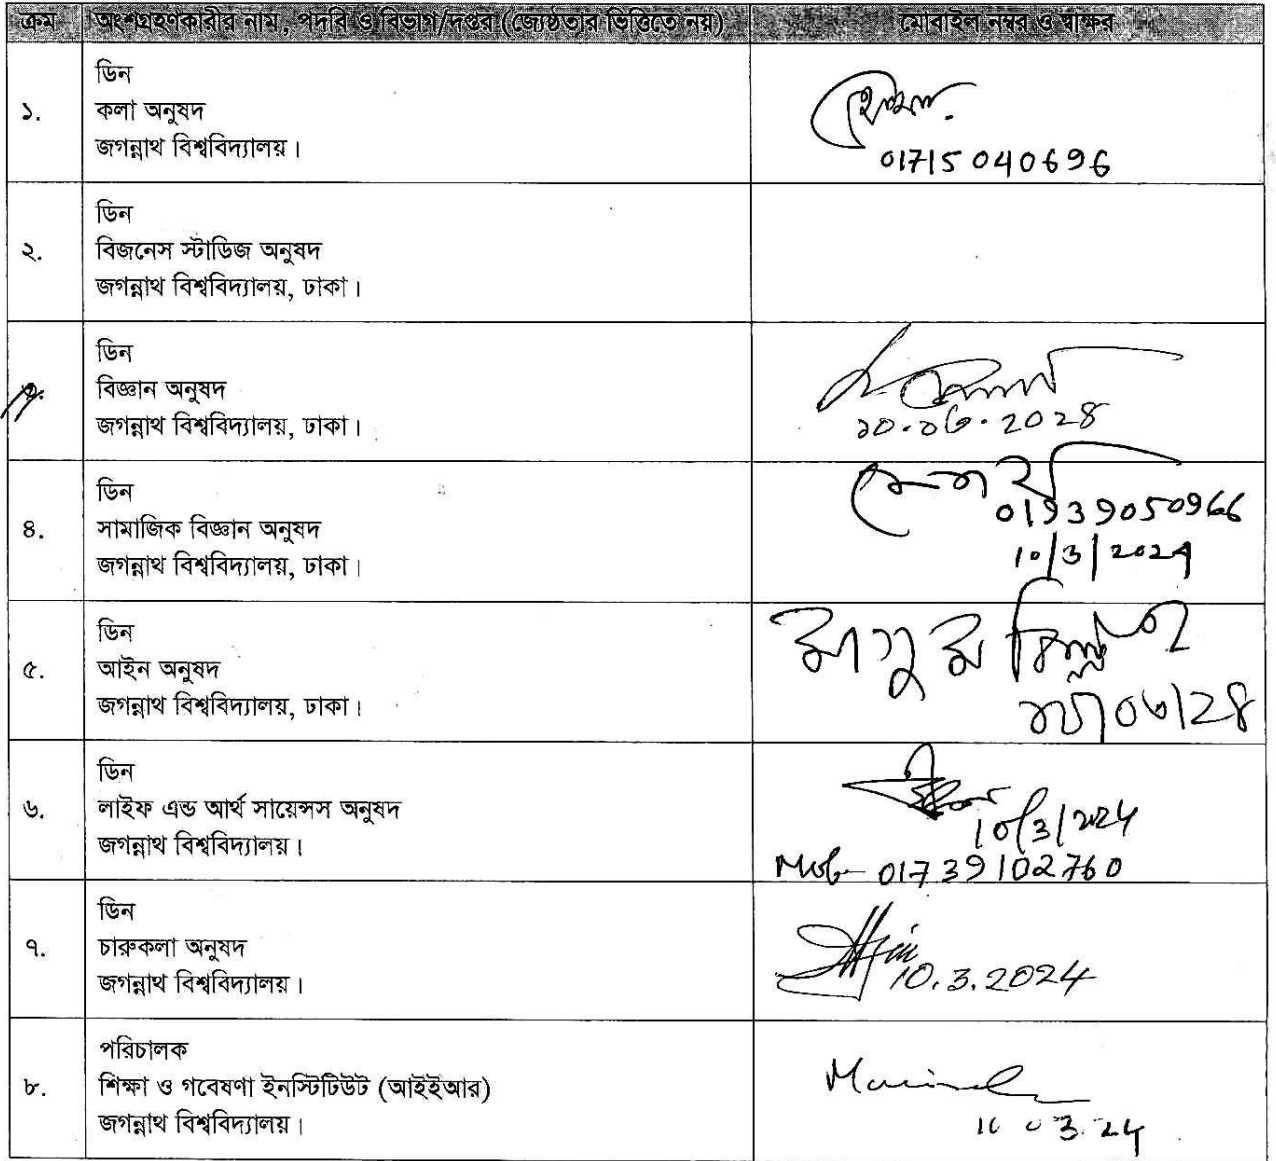 ক্রম অংশগ্রহণকারীর নাম, পদবি ও বিভাগ/দপ্তর (জ্যেষ্ঠতার ভিত্তিতে নয়) মোবাইল নম্বর ও স্বাক্ষর
১.
ডিন
কলা অনুষদ
জগন্নাথ বিশ্ববিদ্যালয়।
01715 040696
২.
ডিন
বিজনেস স্টাডিজ অনুষদ
জগন্নাথ বিশ্ববিদ্যালয়, ঢাকা।
৩.
ডিন
বিজ্ঞান অনুষদ
জগন্নাথ বিশ্ববিদ্যালয়, ঢাকা।
১০.০৩.২০২৪
৪.
ডিন
সামাজিক বিজ্ঞান অনুষদ
জগন্নাথ বিশ্ববিদ্যালয়, ঢাকা।
01939050966
10/3/2024
৫.
ডিন
আইন অনুষদ
জগন্নাথ বিশ্ববিদ্যালয়, ঢাকা।
৬.
ডিন
লাইফ এন্ড আর্থ সায়েন্সস অনুষদ
জগন্নাথ বিশ্ববিদ্যালয়।
10/3/2024
Mob- 01739102760
৭.
ডিন
চারুকলা অনুষদ
জগন্নাথ বিশ্ববিদ্যালয়।
10.3.2024
৮.
পরিচালক
শিক্ষা ও গবেষণা ইনস্টিটিউট (আইইআর)
জগন্নাথ বিশ্ববিদ্যালয়।
10 03.24